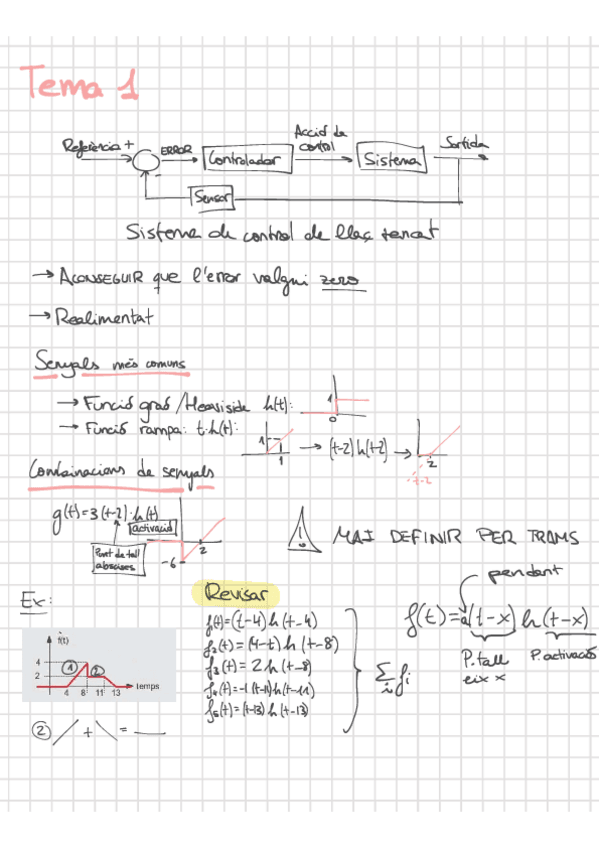 Tema 1
Referència + ERROR Controlador Acció de control Sistema Sortida
-
Sensor
Sistema de control de llaç tancat
→ ACONSEGUIR que l'error valgui zero
→ Realimentat
Senyals més comuns
→ Funció graó /Heaviside h(t): 1 0
→ Funció rampa: t·h(t): 1 1 → (t-2) h(t-2) → 2 t-2
Combinacions de senyals
g(t)=3(t-2)·h(t)
activació
Punt de tall abscises
-6 2
! MAI DEFINIR PER TRAMS
Ex:
Revisar
pendent
f(t)=a(t-x) h(t-x)
P.tall eix x
P.activació
f(t)=(t-4)h(t-4)
f2(t)=(4-t)h(t-8)
f3(t)=2h(t-8)
f4(t)=-1(t-11)h(t-11)
f5(t)=(t-13)h(t-13)
∑ i fi
f(t)
4
2
1 2
4 8 11 13 temps
2 / + \ = —